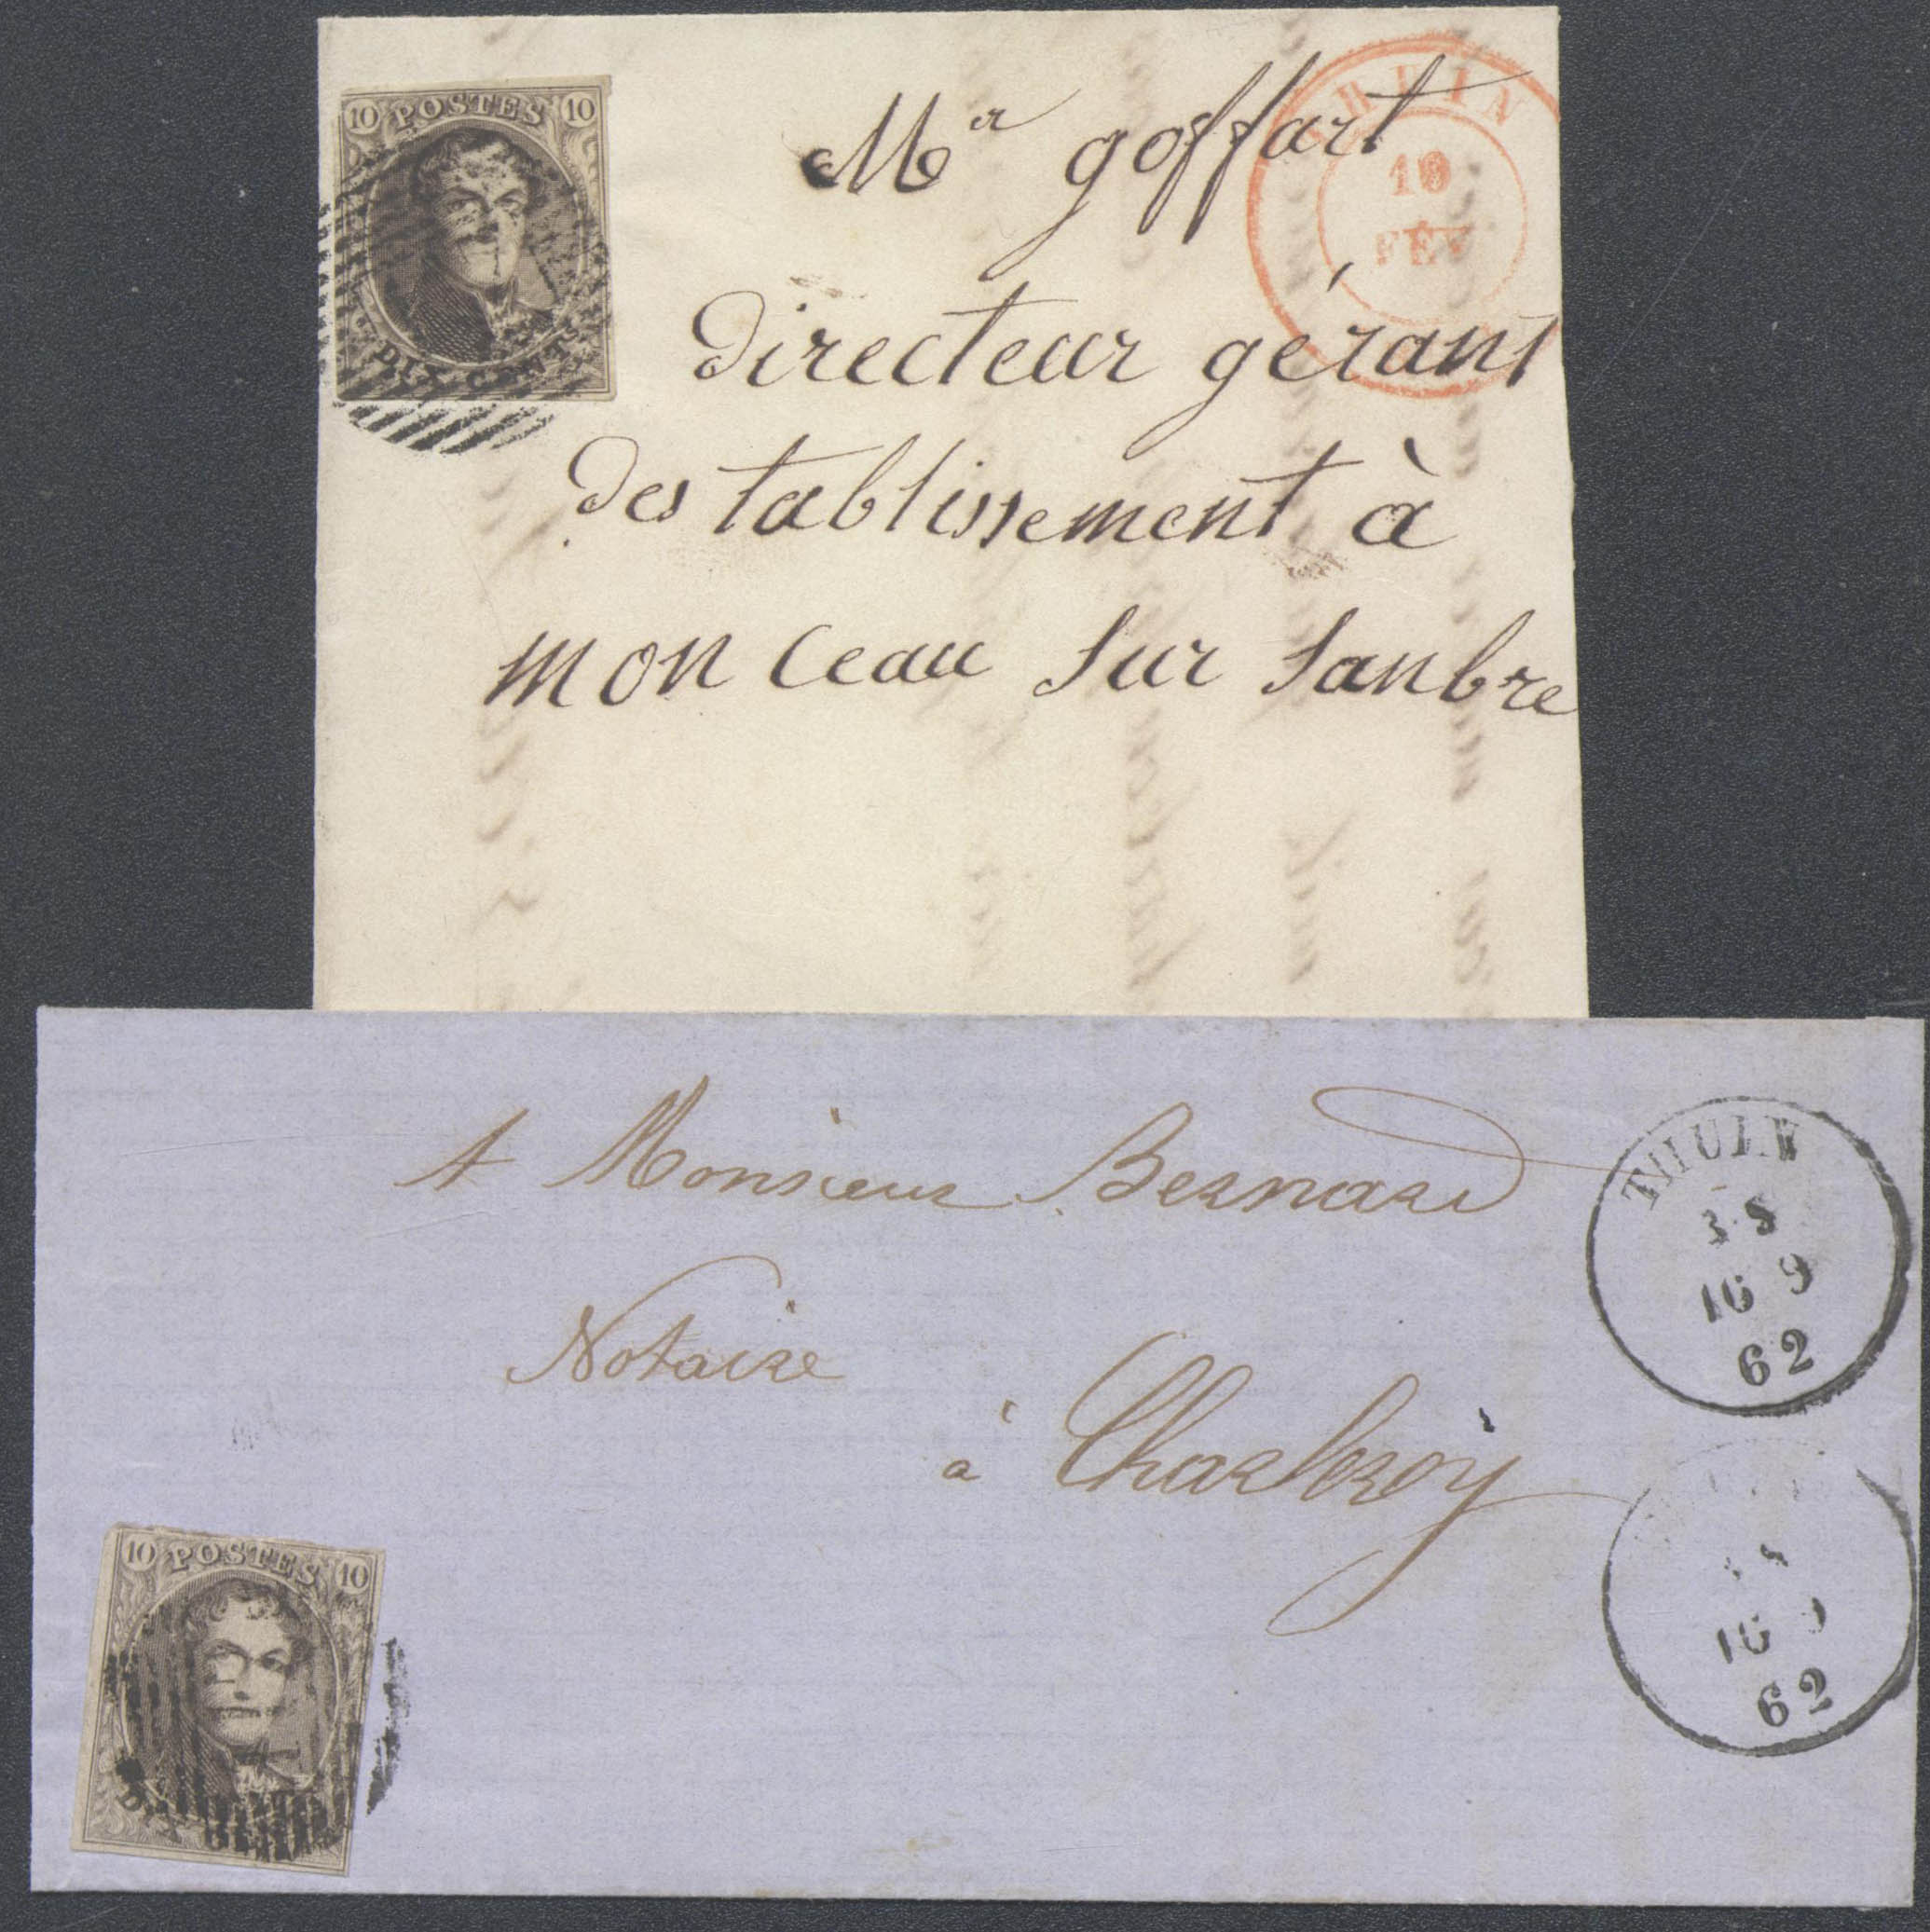 10 POSTES 10
DIX CENT
Mr goffart
10
FÉV
directeur gérant
destablissement à
monceau sur sanbre
A Monsieur Bernard
Notaire
à Charleroy
THUIN
16 9
62
62
10 POSTES 10